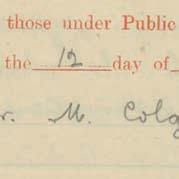 those under Public
the 12 day of
r. M. Colg